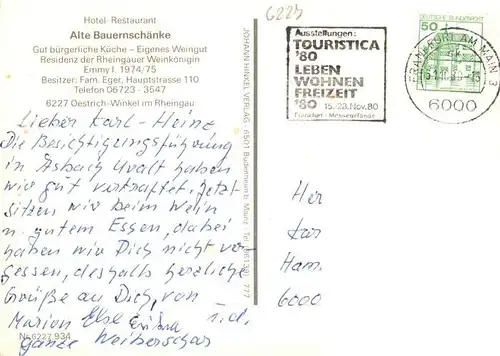 6225
Hotel-Restaurant
Alte Bauernschänke
Gut bürgerliche Küche – Eigenes Weingut
Residenz der Rheingauer Weinkönigin
Emmy I. 1974/75
Besitzer: Fam. Eger, Hauptstrasse 110
Telefon 06723 - 3547
6227 Oestrich-Winkel im Rheingau
Lieber Karl-Heinz
Die Besichtigungsführung
in Asbach Uralt haben
wir gut verkraftet, jetzt
sitzen wir beim Wein
u. gutem Essen, dabei
haben wir Dich nicht ver-
gessen, deshalb herzliche
Grüße an Dich, von
Marion Else
ganze Weiberschar
Nr. 6227 934
JOHANN HINKEL VERLAG · 6501 Budenheim b. Mainz · Tel. (06139) 777
Ausstellungen:
TOURISTICA
'80
LEBEN
WOHNEN
FREIZEIT
'80 15.-23.Nov.80
Frankfurt - Messegelände
DEUTSCHE BUNDESPOST
50
FRANKFURT AM MAIN 3
6000
Her
Kar
Ham
6000